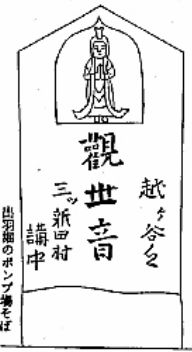 越ヶ谷々
觀世音
三ッ新田村
講中
出羽堀のポンプ場そば